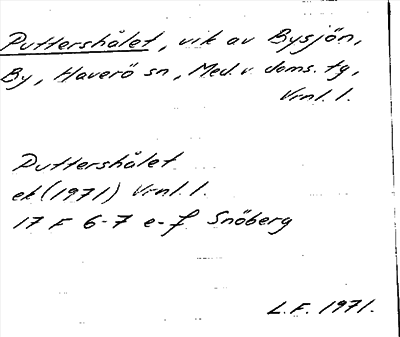 Puttershålet, vik av Bysjön,
By, Haverö sn, Med. v. doms. tg,
Vrnl. 1.
Puttershålet
ek (1971) Vrnl. 1.
17 F 6-7 e-f Snöberg
L.F. 1971.